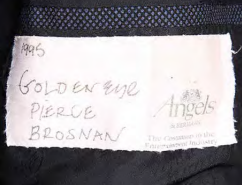 1995
GOLDENEYE
PIERCE
BROSNAN
Angels